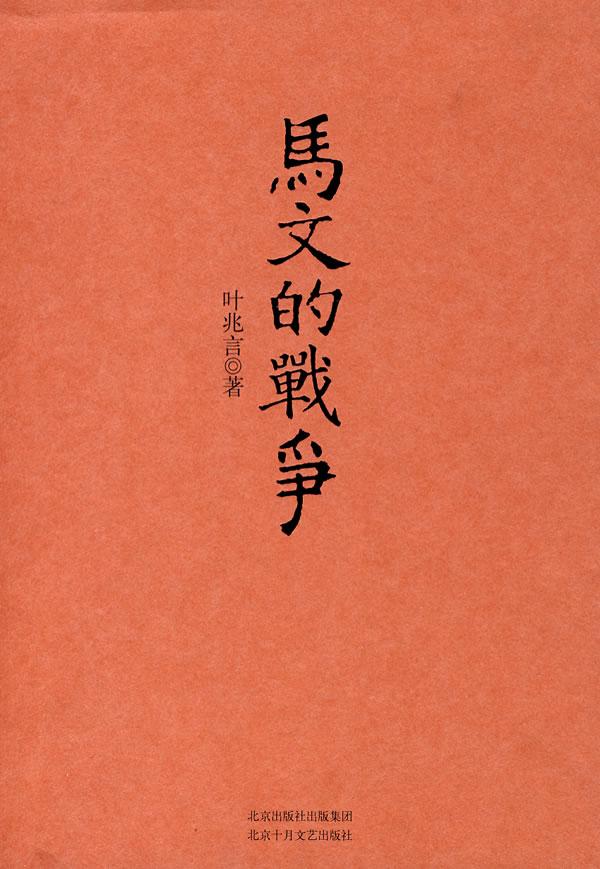 馬文的戰爭
叶兆言◎著
北京出版社出版集团
北京十月文艺出版社